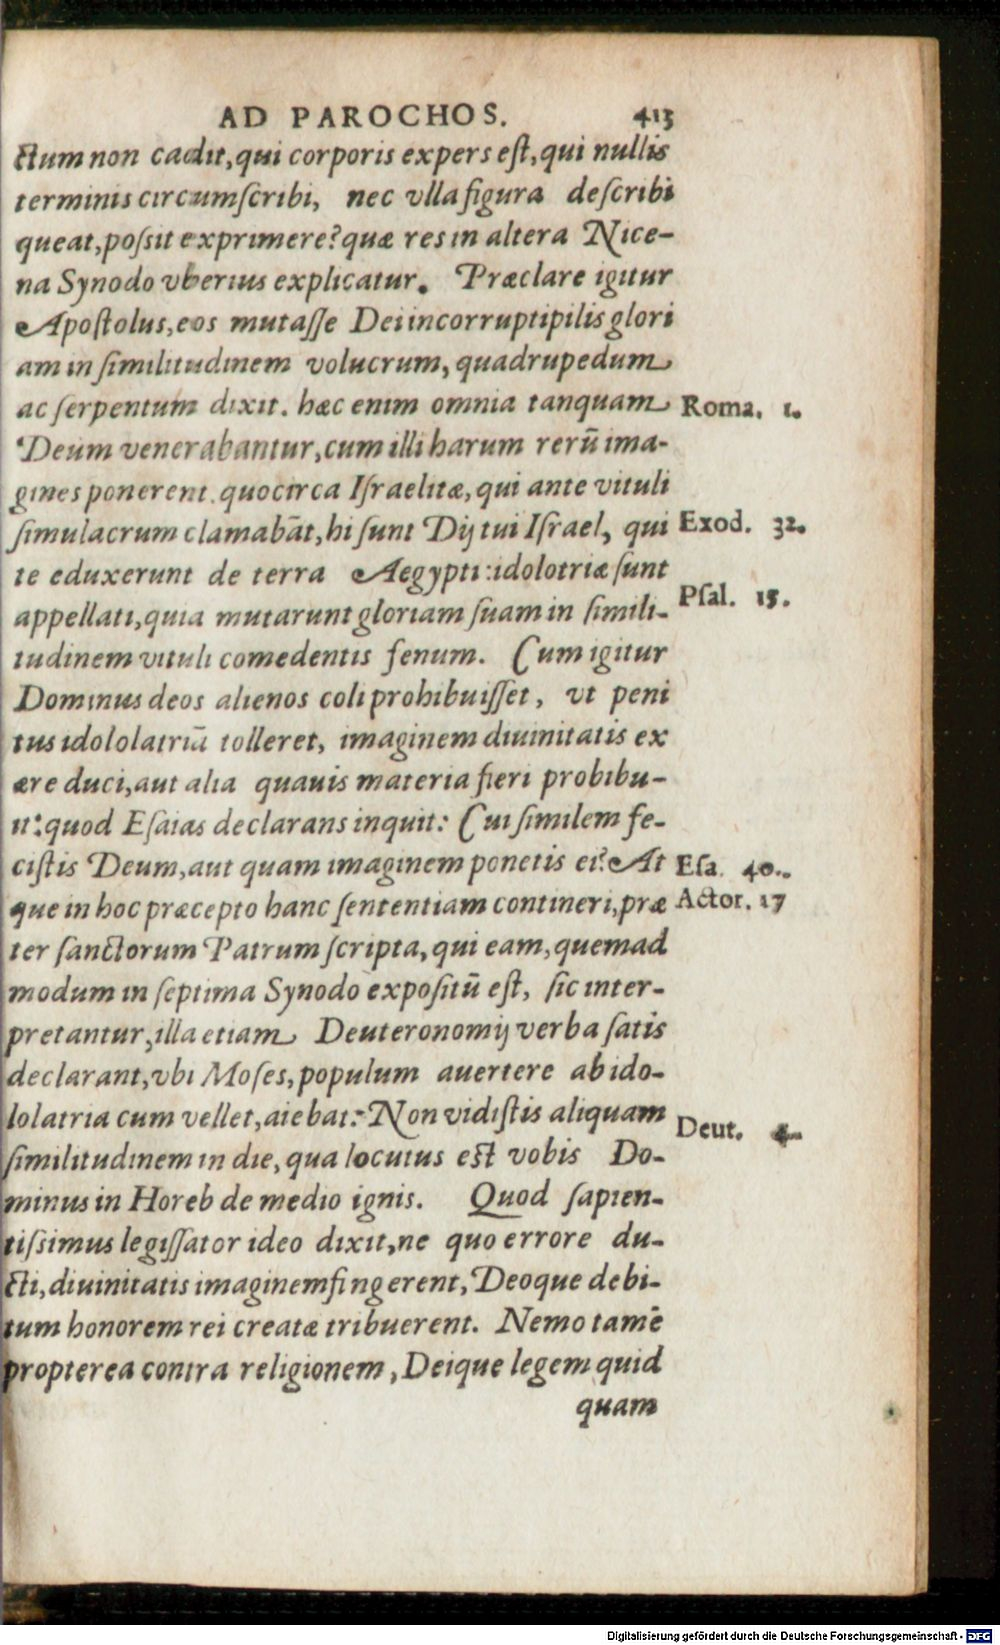 AD PAROCHOS. 413
ctum non cadit, qui corporis expers eſt, qui nullis
terminis circumſcribi, nec vlla figura deſcribi
queat, poſsit exprimere? quæ res in altera Nice-
na Synodo vberius explicatur. Præclare igitur
Apoſtolus, eos mutaſſe Dei incorruptipilis glori
am in ſimilitudinem volucrum, quadrupedum
ac ſerpentum dixit. hæc enim omnia tanquam Roma. 1.
Deum venerabantur, cum illi harum rerū ima-
gines ponerent. quocirca Iſraelitæ, qui ante vituli
ſimulacrum clamabāt, hi ſunt Dij tui Iſrael, qui Exod. 32.
te eduxerunt de terra Aegypti: idolotriæ ſunt
appellati, quia mutarunt gloriam ſuam in ſimili- Pſal. 15.
tudinem vituli comedentis fenum. Cum igitur
Dominus deos alienos coli prohibuiſſet, vt peni
tus idololatriā tolleret, imaginem diuinitatis ex
ære duci, aut alia quauis materia fieri probibu-
it: quod Eſaias declarans inquit: Cui ſimilem fe-
ciſtis Deum, aut quam imaginem ponetis ei? At Eſa. 40.
que in hoc præcepto hanc ſententiam contineri, præ Actor. 17
ter ſanctorum Patrum ſcripta, qui eam, quemad
modum in ſeptima Synodo expoſitū eſt, ſic inter-
pretantur, illa etiam Deuteronomij verba ſatis
declarant, vbi Moſes, populum auertere ab ido-
lolatria cum vellet, aiebat: Non vidiſtis aliquam
ſimilitudinem in die, qua locutus eſt vobis Do- Deut. 4.
minus in Horeb de medio ignis. Quod ſapien-
tiſsimus legiſſator ideo dixit, ne quo errore du-
cti, diuinitatis imaginem fingerent, Deoque debi-
tum honorem rei creatæ tribuerent. Nemo tamē
propterea contra religionem, Deique legem quid
quam
Digitalisierung gefördert durch die Deutsche Forschungsgemeinschaft - DFG